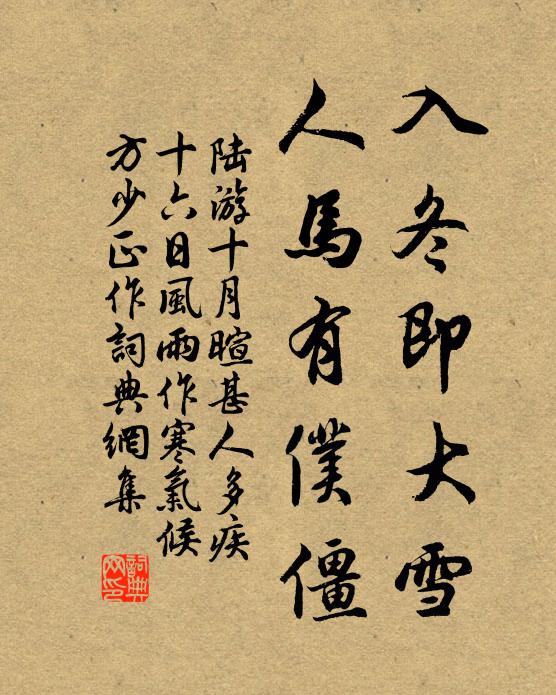 入冬即大雪
人馬有僕僵
陆游十月暄甚人多疾
十六日風雨作寒氣候
方少正作詞典網集
詞典网印